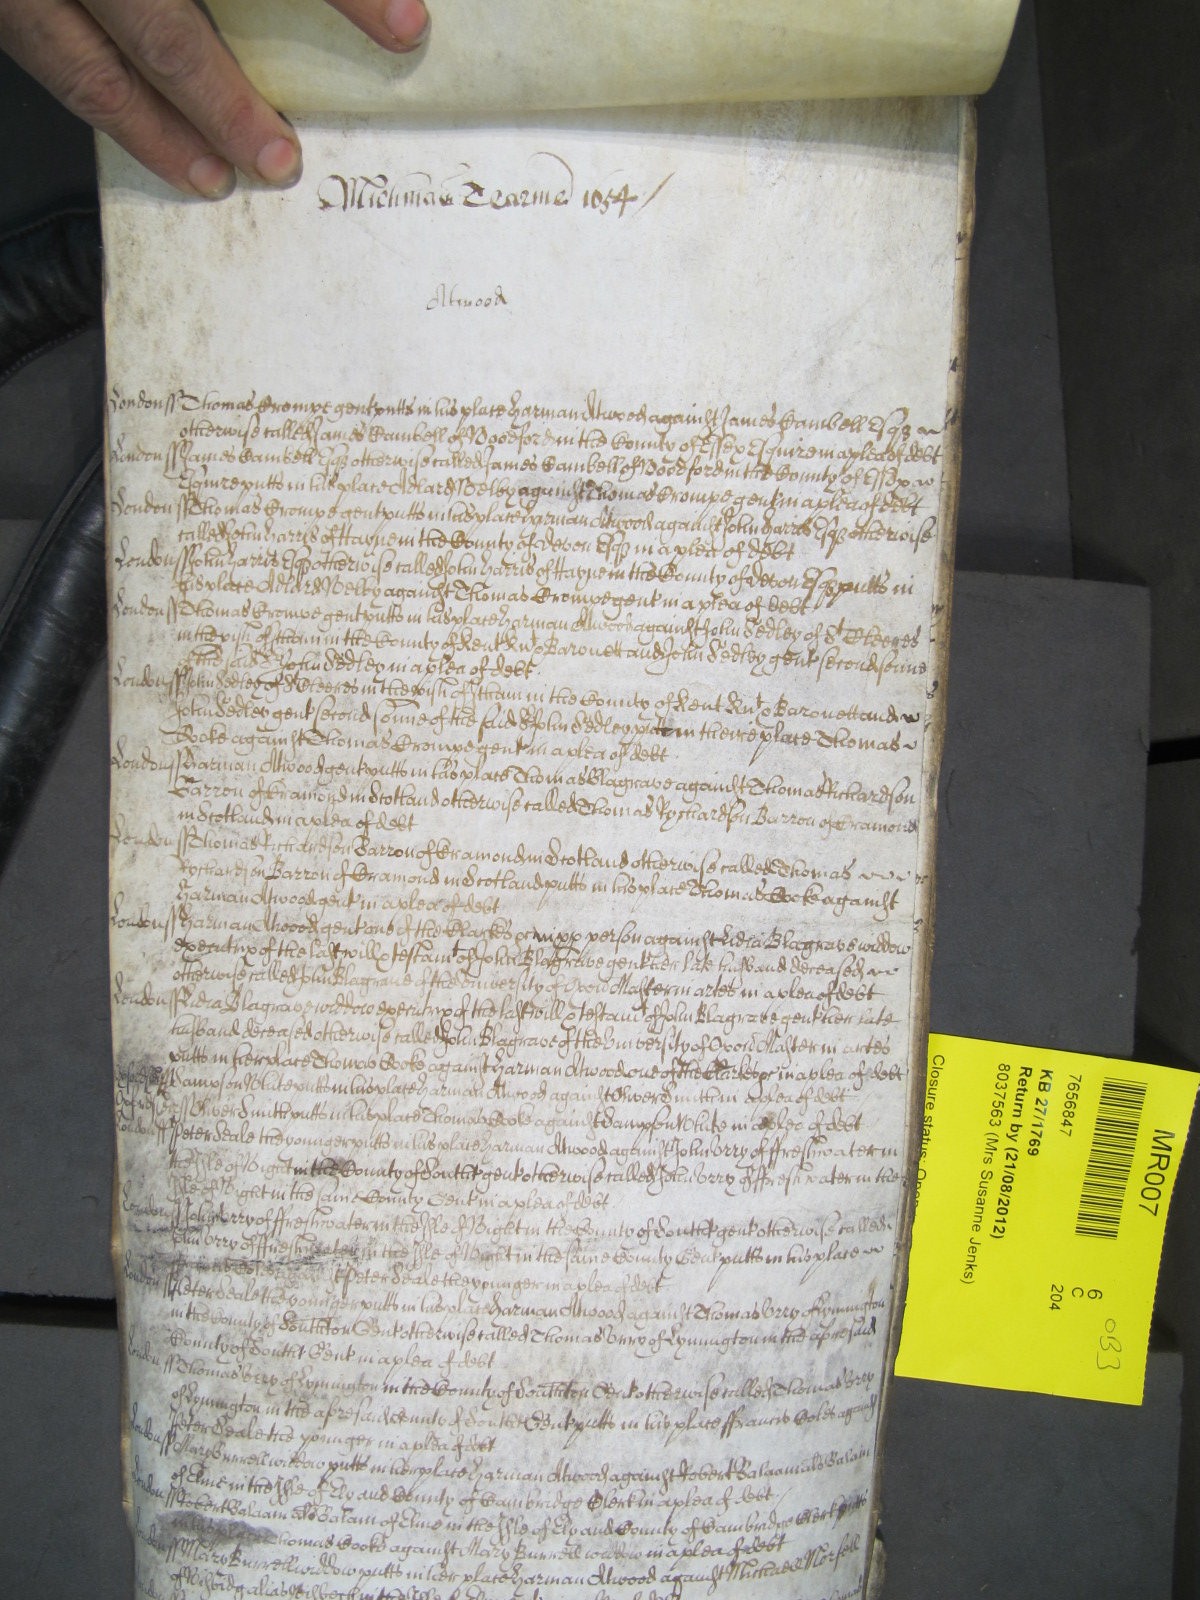 Michmas Tearme 1654
Atwood
London ss Thomas Crompe gent putts in his place Harman Atwood against James Cambell Esqr
otherwise called James Cambell of Woodford in the County of Essex Esquire in a plea of debt
London ss James Cambell Esqr otherwise called James Cambell of Woodford in the County of Essex
Esquire putts in his place Adlard Welby against Thomas Crompe gent in a plea of debt
London ss Thomas Crompe gent putts in his place Harman Atwood against John Harris Esqr otherwise
called John Harris of Hayne in the County of Devon Esqr in a plea of debt
London ss John Harris Esqr otherwise called John Harris of Hayne in the County of Devon Esqr putts in
his place Adlard Welby against Thomas Crompe gent in a plea of debt
London ss Thomas Crompe gent putts in his place Harman Atwood against John Sedley of St Cleeres
in the pish of Itham in the County of Kent Knt & Baronett and John Sedley gent second sonne
of the said Sr John Sedley in a plea of debt
London ss John Sedley of St Cleeres in the pish of Itham in the County of Kent Knt & Baronett and
John Sedley gent second sonne of the said Sr John Sedley putt in theire place Thomas
Cooke against Thomas Crompe gent in a plea of debt
London ss Harman Atwood gent putts in his place Thomas Blagrave against Thomas Richardson
Barron of Cramond in Scotland otherwise called Thomas Rychardson Barron of Cramond
in Scotland in a plea of debt
London ss Thomas Richardson Barron of Cramond in Scotland otherwise called Thomas
Rychardson Barron of Cramond in Scotland putts in his place Thomas Cooke against
Harman Atwood gent in a plea of debt
London ss Harman Atwood gent one of the Clarkes &c in pp person against Lidia Blagrave widdow
executrix of the last will & testamt of John Blagrave gent her late husband deceased
otherwise called John Blagrave of the University of Oxon Master in artes in a plea of debt
London ss Lidia Blagrave widdow executrix of the last will & testamt of John Blagrave gent her late
husband deceased otherwise called John Blagrave of the University of Oxon Master in artes
putts in her place Thomas Cooke against Harman Atwood one of the Clarkes &c in a plea of debt
ss Sampson White putts in his place Harman Atwood against Oliver Smith in a plea of debt
ss Oliver Smith putts in his place Thomas Cooke against Sampson White in a plea of debt
London ss Peter Seale the younger putts in his place Harman Atwood against John Urry of Freshwater in
the Isle of Wight in the County of Southt gent otherwise called John Urry of Freshwater in the
Isle of Wight in the same County Gent in a plea of debt
London ss John Urry of Freshwater in the Isle of Wight in the County of Southt gent otherwise called
John Urry of Freshwater in the Isle of Wight in the same County Gent putts in his place
Peter Seale the younger in a plea of debt
London ss Peter Seale the younger putts in his place Harman Atwood against Thomas Urry of Lymington
in the County of Southton Gent otherwise called Thomas Urry of Lymington in the aforesaid
County of Southt Gent in a plea of debt
London ss Thomas Urry of Lymington in the County of Southton Gent otherwise called Thomas Urry
of Lymington in the aforesaid County of Southt Gent putts in his place ffrancis Coles against
Peter Seale the younger in a plea of debt
London ss Mary Burrell widdow putts in her place Harman Atwood against Robert Balaam als Balam
of Elme in the Isle of Ely and County of Cambridge Clerk in a plea of debt
London ss Robert Balaam als Balam of Elme in the Isle of Ely and County of Cambridge Clerk putts
in his place Thomas Cooke against Mary Burrell widdow in a plea of debt
London ss Mary Burrell widdow putts in her place Harman Atwood against Michaell
MR007
7656847
6
C
204
KB 27/1769
Return by (21/08/2012)
8037563 (Mrs Susanne Jenks)
Closure status: Open
OB3